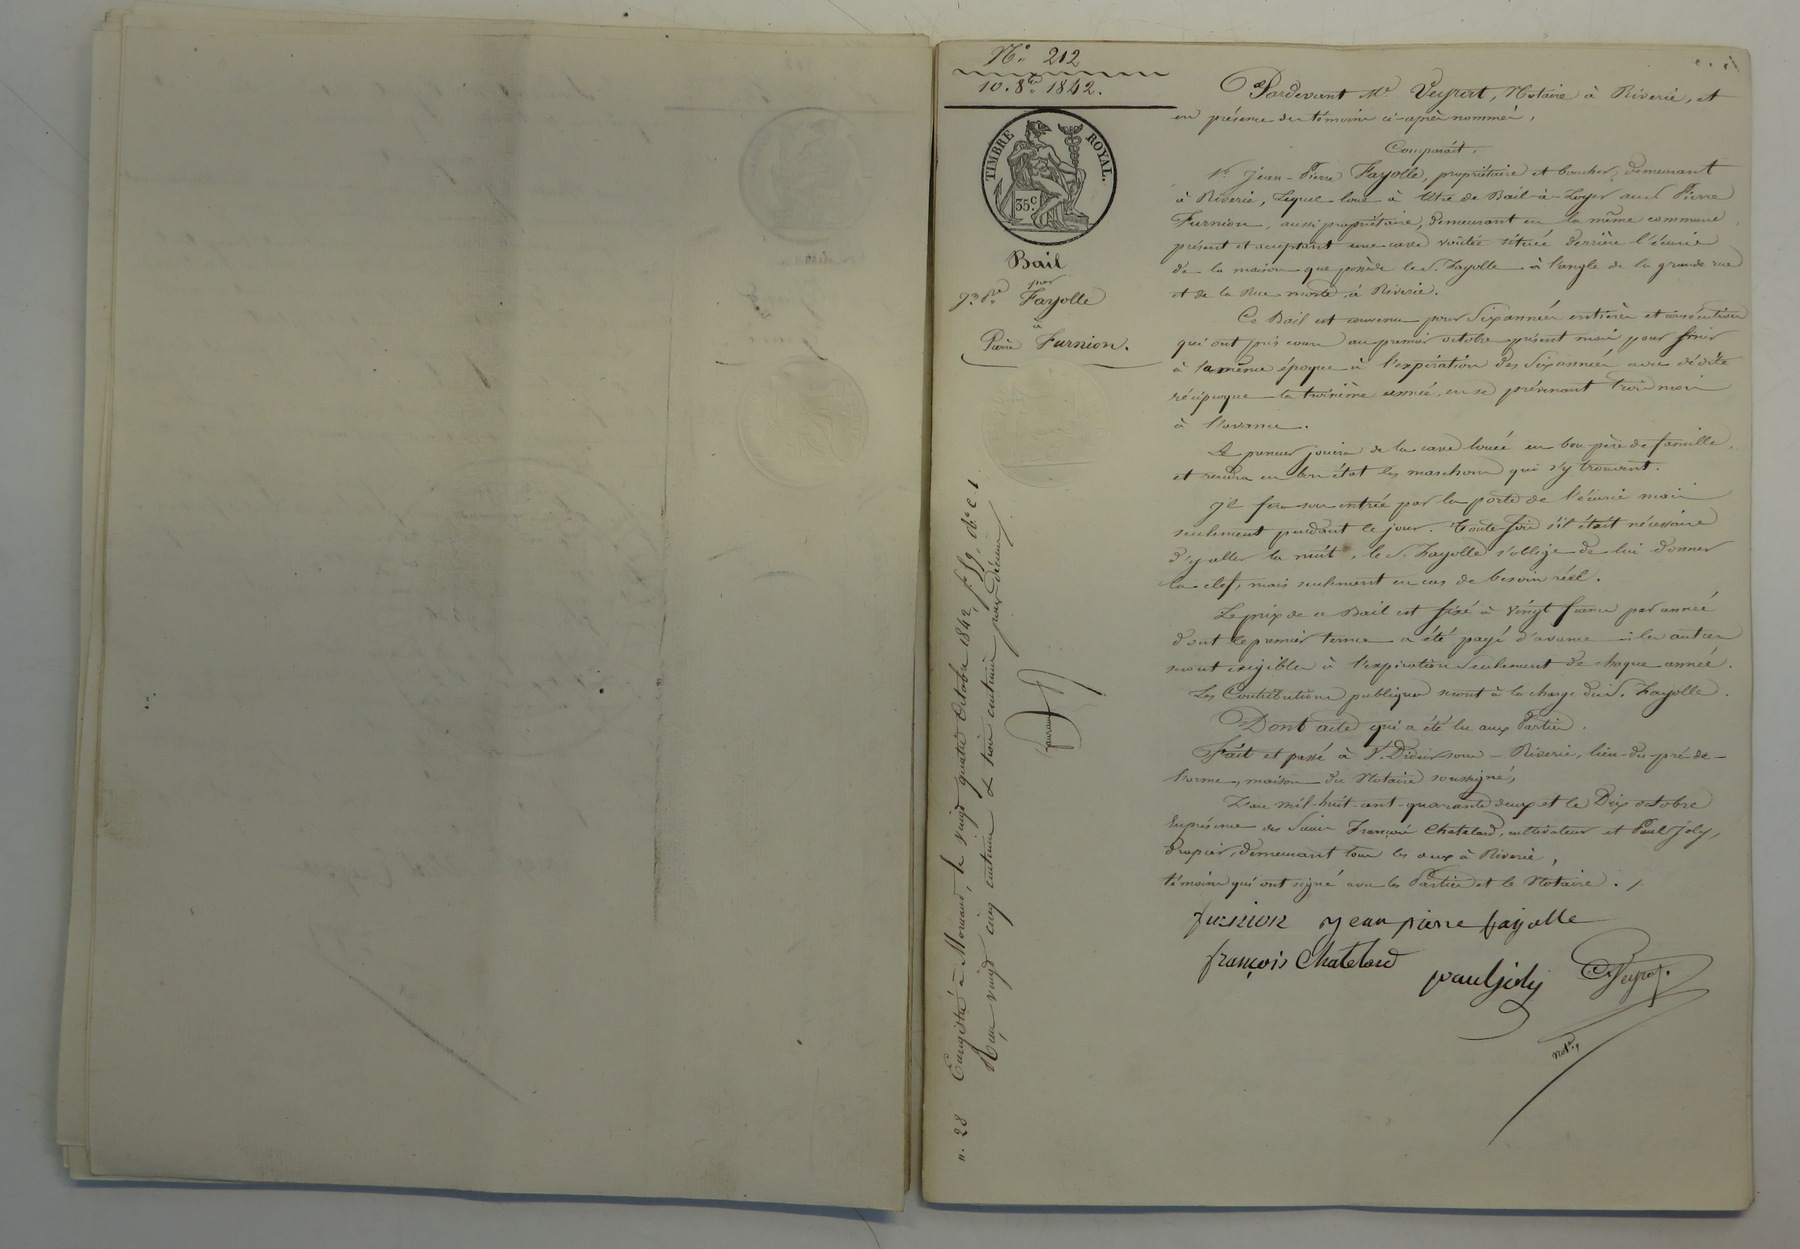 N° 212
10. 8bre 1842.
TIMBRE ROYAL.
35 c.
Bail
par
Fayolle
à
Pierre Furnion.
Pardevant Me. Veyrat, Notaire à Riverie, et
en présence des témoins ci-après nommés,
Comparait,
Sr. Jean-Pierre Fayolle, propriétaire et boucher, demeurant
à Riverie, Lequel loue à titre de Bail-à-Loyer au S. Pierre
Furnion, aussi propriétaire, demeurant en la même commune,
présent et acceptant une cave voûtée située derrière l'écurie
de la maison que possède le S. Fayolle à l'angle de la grande rue
et de la Rue morte, à Riverie.
Ce Bail est convenu pour Six années entières et consécutives
qui ont pris cours au premier octobre présent mois pour finir
à la même époque à l'expiration des Six années avec dédite
réciproque la troisième année, en se prévenant trois mois
à l'avance.
Le preneur jouira de la cave louée en bon père de famille,
et rendra en bon état les qui s'y trouvent.
Il fera son entrée par la porte de l'écurie mais
seulement pendant le jour. Toute-fois s'il était nécessaire
d'y aller la nuit, le S. Fayolle s'oblige de lui donner
la clef, mais seulement en cas de besoin réel.
Le prix de ce Bail est fixé à vingt francs par année
dont le premier terme a été payé d'avance ; les autres
seront exigibles à l'expiration seulement de chaque année.
Les Contributions publiques seront à la charge du S. Fayolle.
Dont acte qui a été lu aux Parties.
Fait et passé à St. Didier sous Riverie, lieu du pré-de-
lorme, maison du Notaire soussigné,
L'an mil-huit-cent-quarante deux et le Dix octobre
En présence des Sieurs François Chatelard, cultivateur et Paul Joly,
drapier, demeurant tous les deux à Riverie,
témoins qui ont signé avec les Parties et le Notaire.
furnion jean pierre fayolle
françois Chatelard
paul joly
Veyrat
notre,
n. 28 Enregistré à Mornant, le vingt quatre Octobre 1842, f. 59
Reçu vingt cinq centimes & trois centimes pour décime